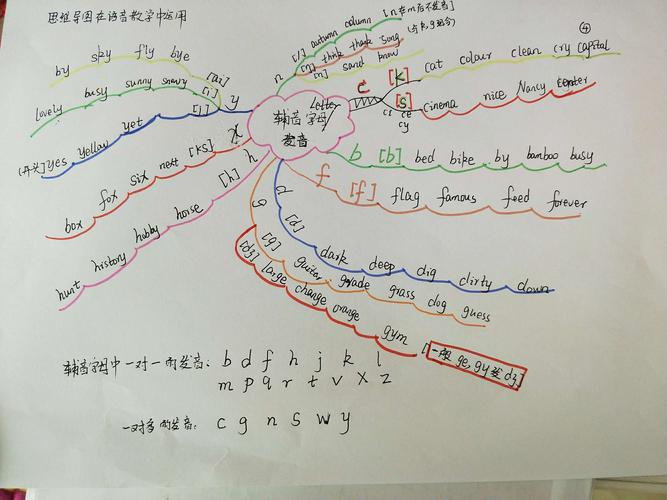 思维导图在语音教学中运用
④
辅音字母
发音
letter
n
[/] autumn column [n在m后不发音]
[ŋ] think thank song
[n] sand know
c
[k] cat colour clean cry capital
[s] cinema nice Nancy center
ci ce
cy
b [b] bed bike by bamboo busy
f [f] flag famous feed forever
d [d] dark deep dig dirty down
g
[g] guitar grade grass dog guess
[dʒ] large change orange gym [一般ge,gy发dʒ]
h [h] horse hobby history hunt
x [ks] next six fox box
y
[ai] bye fly sky by
[i] snowy sunny busy lovely
[j] yet yellow yes (开头)
辅音字母中一对一的发音: b d f h j k l
m p q r t v x z
一对多的发音: c g n s w y